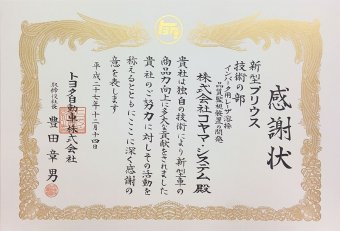 感謝状
新型プリウス
技術の部
インパネ用レーザ溶接
品質監視装置の開発
株式会社コヤマ・システム 殿
貴社は独自の技術により新型車の
商品力向上に多大な貢献をされました
貴社のご努力に対しその活動を
称えるとともにここに深く感謝の
意を表します
平成二十七年十二月十四日
トヨタ自動車株式会社
取締役社長 豊田章男